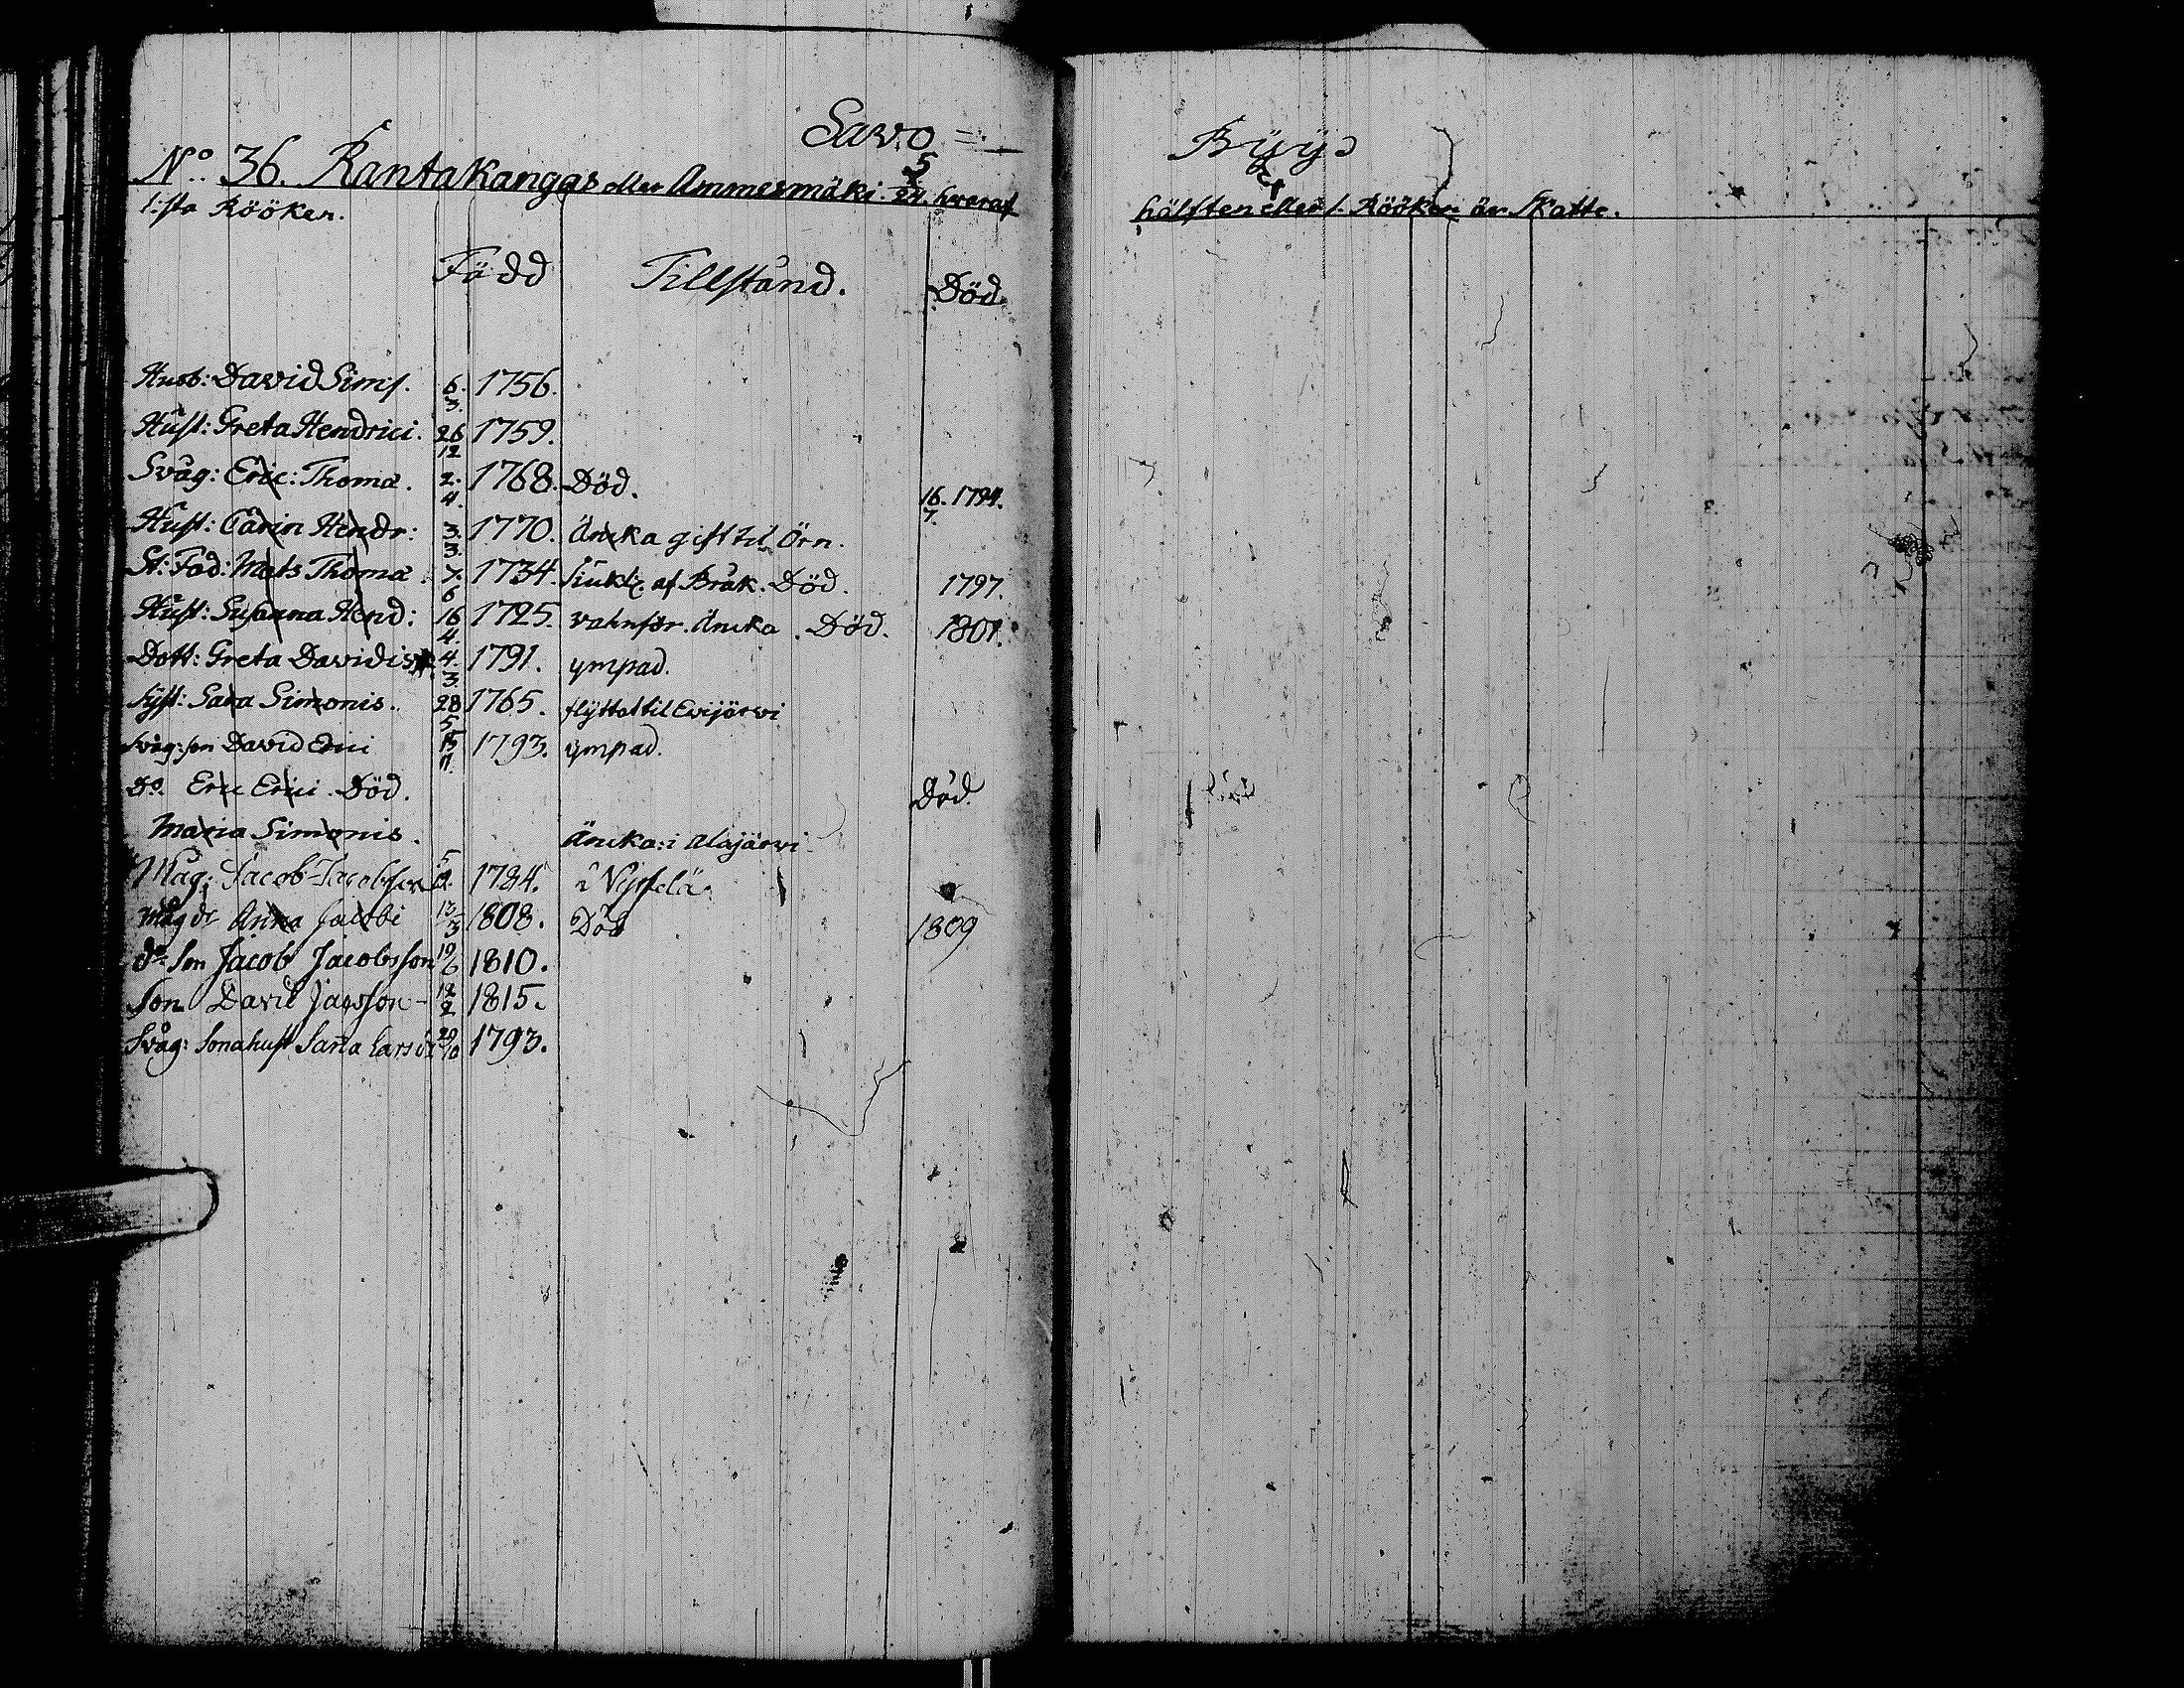 Savo =
Byys
No. 36. Rantakangas eller Ammesmäki. 5/24. hvaraf
hälften eller 1. Rööken är Skatte.
1:sta Rööken.
Född Tillstånd. Död
Husb: David Sims. 6. 3. 1756.
Hust: Greta Hendrici. 26 12 1759.
Svåg: Eric: Thoma. 2. 4. 1768. Död. 16. 7. 1794.
Hust: Carin Hendr: 3. 3. 1770. Äncka gift til Örn.
St: Fad: Mats Thoma 7. 6 1734. Siukl. af Bråk. Död. 1797.
Hust: Susanna Hend: 16 4. 1725. vahnför. Äncka. Död. 1801.
Dott: Greta Davidis 4. 3. 1791. ympad.
Syst: Sara Simonis. 28 5 1765. flyttat til Evijärvi
Svåg: son David Erici 15 11. 1793. ympad.
Do. Eric Erici. Död. Död
Maria Simonis. Äncka: i Alajärvi
Måg: Jacob Jacobsson 5 12. 1784. i
måg dr Anna Jacobi 13 3 1808. Död 1809
do Son Jacob Jacobsson 10/6 1810.
Son David Jacsson - 12 2 1815.
Svåg: Sonahust Sanna Larsdr 20/10 1793.